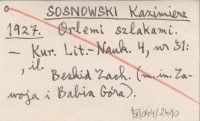 SOSNOWSKI Kazimierz
1927. Orlemi szlakami.
— Kur. Lit.-Nauk. 4, nr 31:
, il.
Beskid Zach. (m.in. Za-
woja i Babia Góra).